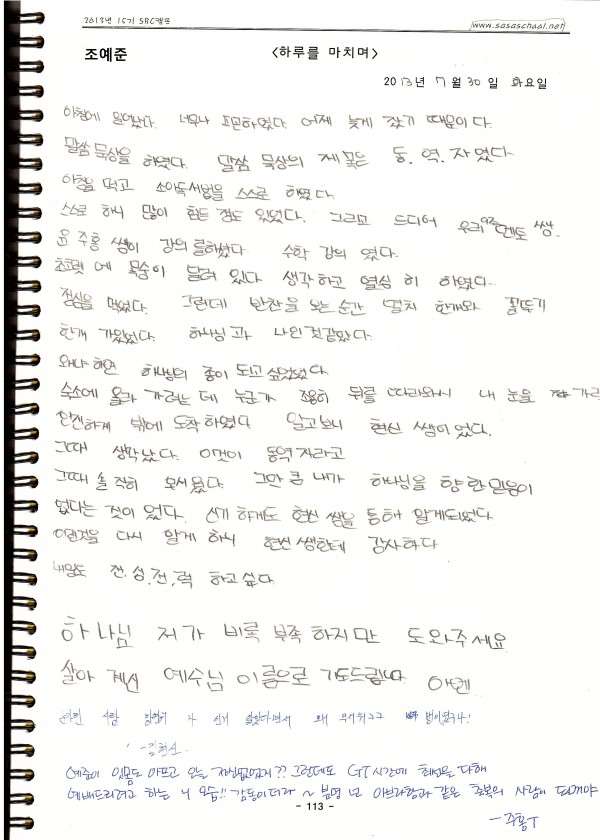 2013년 15기 SRC캠프
www.sasaschool.net
조예준 <하루를 마치며>
2013년 7월 30일 화요일
아침에 일어났다. 너무나 피곤하였다. 어제 늦게 잤기 때문이다.
말씀 묵상을 하였다. 말씀 묵상의 제목은 동.역.자였다
아침을 먹고 소아독서법을 스스로 하였다.
스스로 하니 많이 힘든 점도 있었다. 그리고 드디어 우리 멘토 쌤.
윤주홍 쌤이 강의를하셨다 수학 강의 였다.
초코렛 에 목숨이 달려 있다 생각하고 열심히 하였다.
점심을 먹었다. 그런데 반찬을 보는순간 멸치 한개와 꼴뚜기
한개 가있었다. 하나님과 나인것같았다.
왜냐하면 하나님의 종이 되고싶었었다
숙소에 올라 가려는 데 누군가 조용히 뒤를 따라와서 내 눈을 가리
안전하게 밖에 도착하였다 알고보니 현신 쌤이었다.
그때 생각났다. 이것이 동역자라고
그때 솔직히 무서웠다. 그만큼 내가 하나님을 향한믿음이
없다는 것이었다. 신기하게도 현신 쌤을 통해 알게되었다
이런것을 다시 알게 하니 현신 쌤한테 감사하다
내일도 전.심.전.력 하고싶다
하나님 저가 비록 부족하지만 도와주세요
살아 계신 예수님 이름으로 기도드립니다 아멘
사람 왜
예준이 몸도 아프고 오늘 ?? 그런데도 GT시간에 최선을 다해
예배드리려고 하는 니 모습!! 감동이더라 ~ 분명 넌 아브라함과 같은 축복의 사람이 될꺼야
- 주홍T
- 113 -